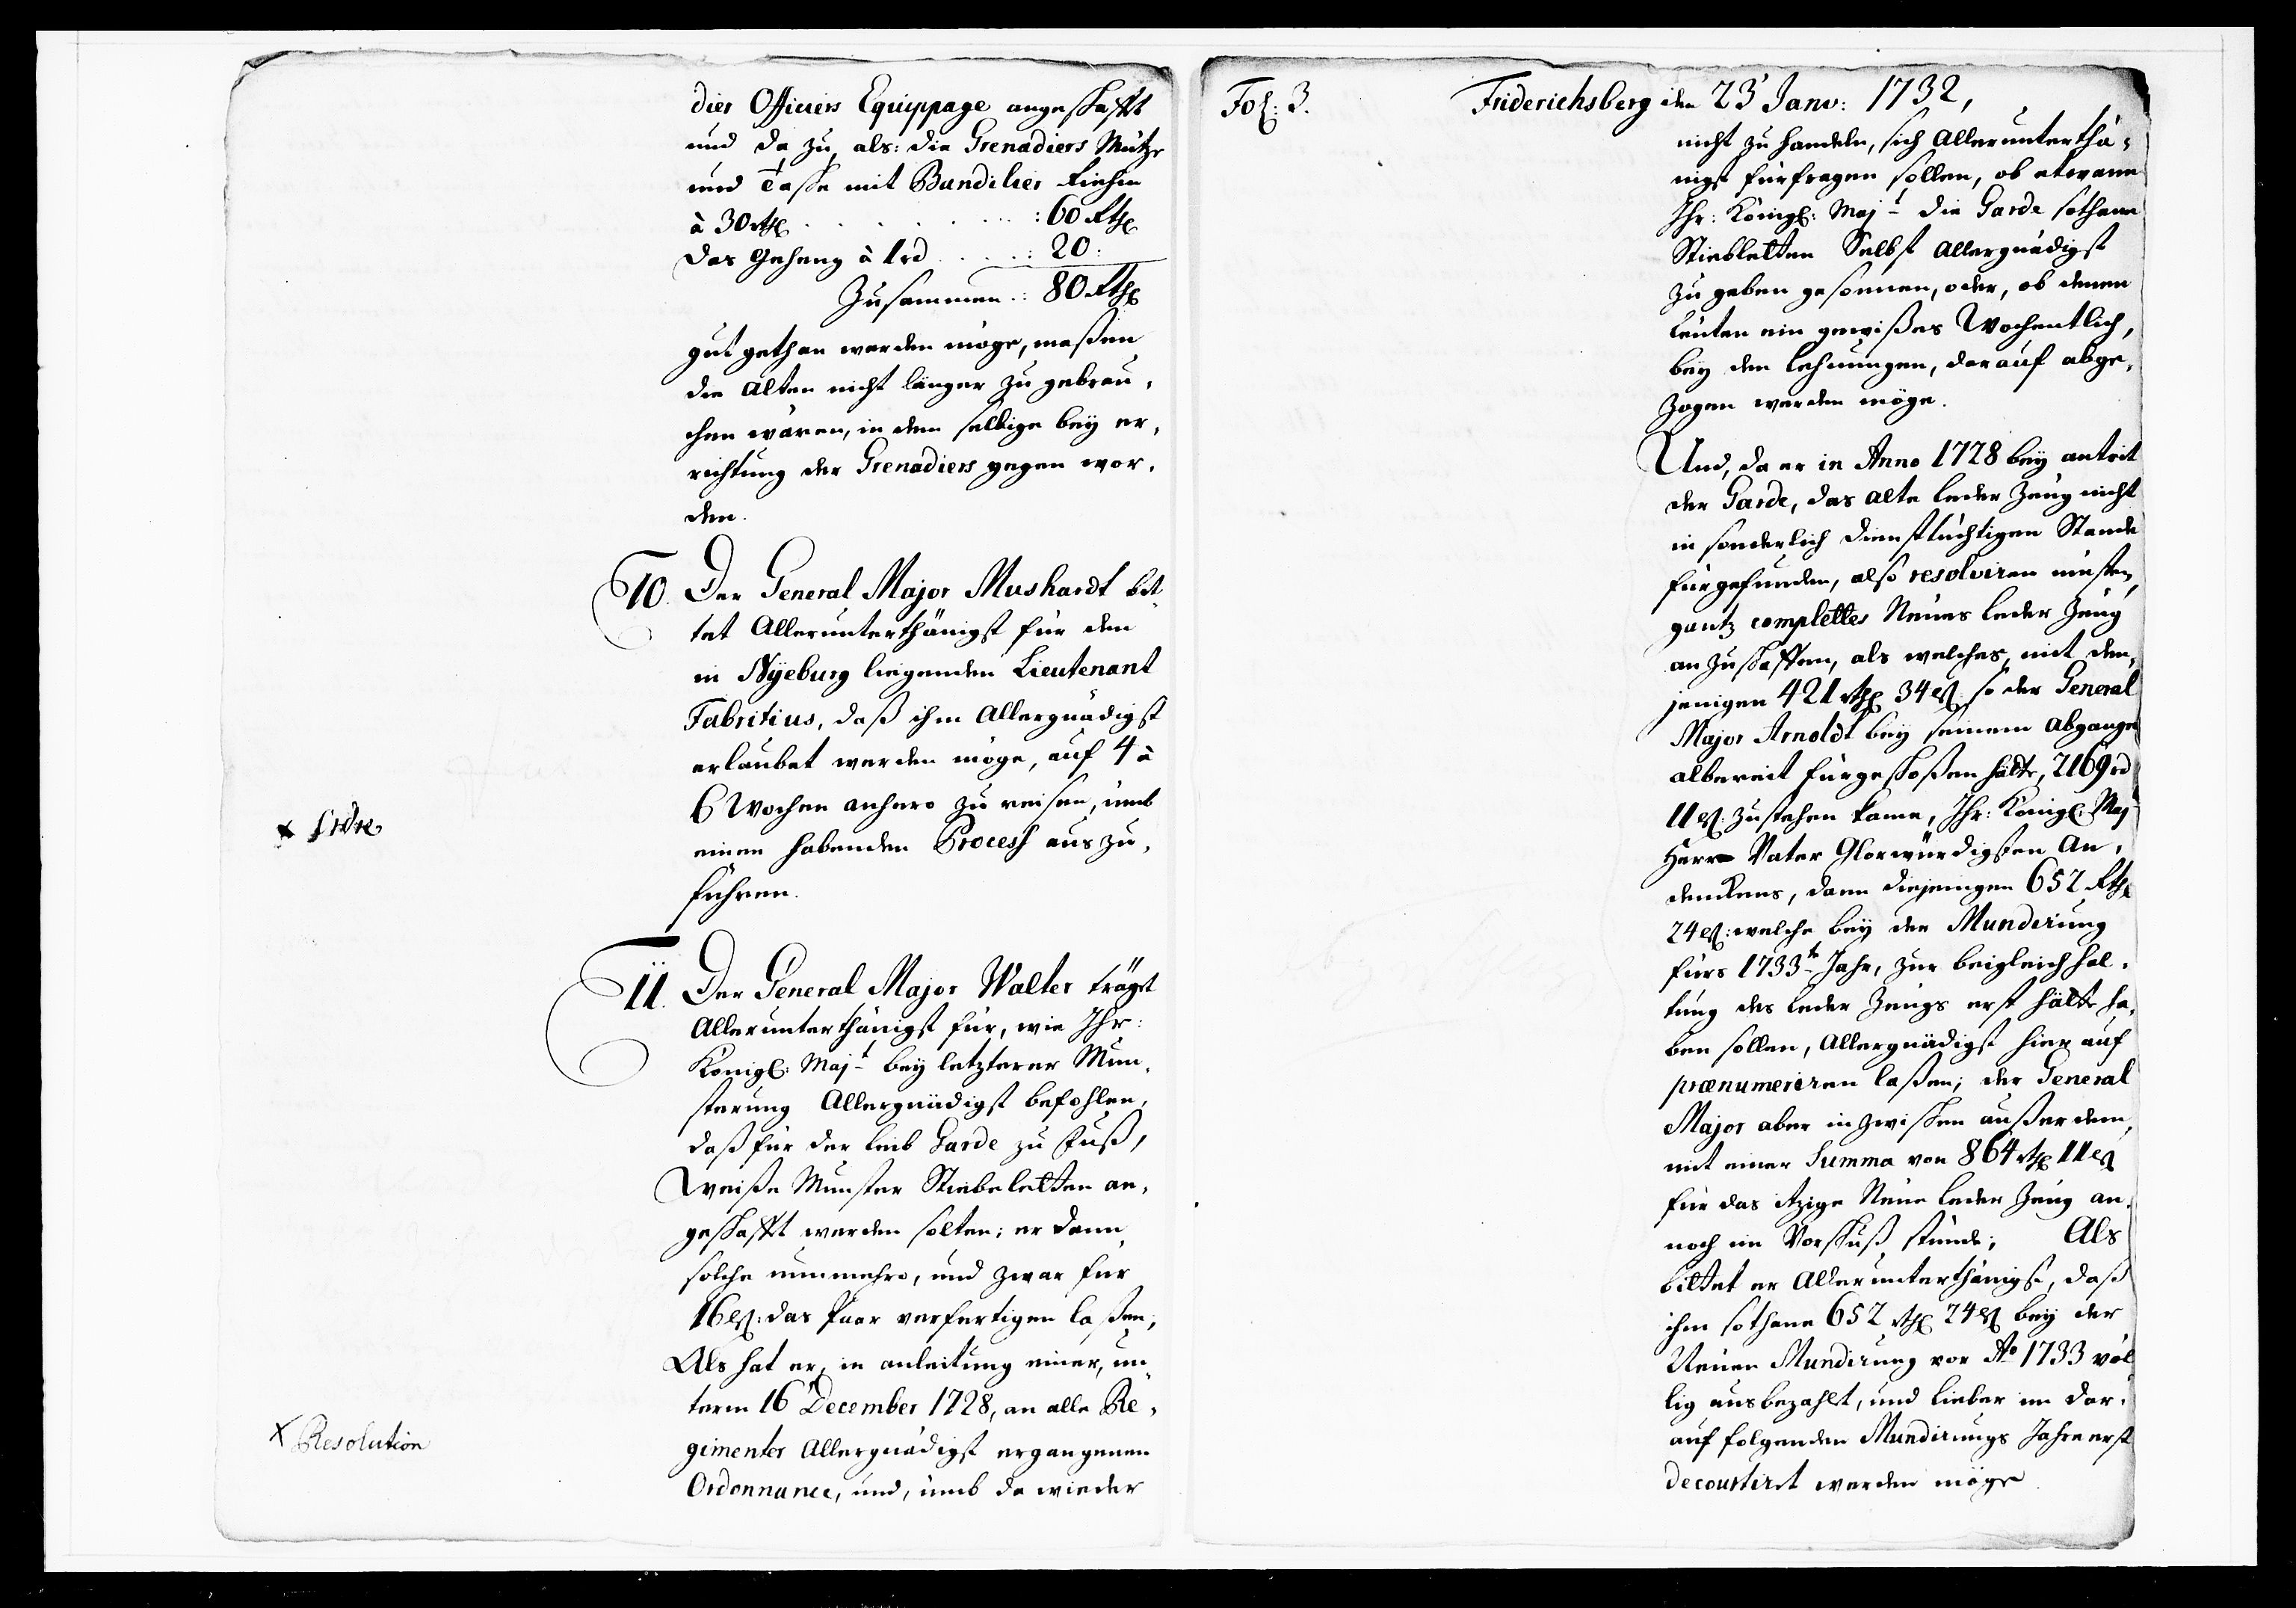 dier Officiers Equippage angeschafft
und da zu, als: die Grenadiers Mütze
und Tasche mit Bandilier
à 30 rthl . . . . . . . : 60 Rthl
das Geheng à 1 rd . . . . : 20:
Zusammen :: 80 Rthl
gut gethan werden möge, maßen
die Alten nicht länger zu gebrau,
chen wären, in dem selbige bey er,
richtung der Grenadiers gegen wor,
den.
10. Der General Major Mushardt bit
tet Allerunterthänigst für den
in Nyeburg liegenden Lieutenant
Fabritius, daß ihm Allergnädigst
erlaubet werden möge, auf 4 à
6 Wochen anhero zu reisen, umb
einen habenden Process aus zu,
führen.
x Ordre
11. Der General Major Walter träget
Allerunterthänigst für, wie Ihr:
Königl: Majt bey letzterer Mun,
sterung Allergnädigst befohlen,
daß für der Leib Garde zu Fuß,
Weiße Munster Stiebeletten an,
geschafft werden solten; er dann
solche nunmehro, und zwar für
16 ß: das Paar verfertigen laßen;
Als hat er, in anleitung einer, un
term 16 December 1728, an alle Re,
gimenter Allergnädigst ergangenen
Ordonnance, und, umb da wieder
x Resolution
Fol: 3.
Friderichsberg den 23t Janv: 1732,
nicht zu handeln, sich Allerunterthä,
nigst fürfragen sollen, ob etwann
Ihr: Königl: Majt die Garde sothane
Stiebletten Selbst Allergnädigst
zu geben gesonnen, oder, ob denen
Leuten ein gewißes Wochentlich,
bey den Lehnungen, darauf abge,
zogen werden möge.
Und, da er in Anno 1728 bey antrit
der Garde, das alte Leder Zeug nicht
in sonderlich diensttüchtigen Stande
fürgefunden, also resolviren müsten,
gantz complettes Neues Leder Zeug
an zuschaffen, als welches, mit den,
jenigen 421 rthl 34 ß so der General
Major Arnoldt bey seinem Abgange
albereit fürgeschoßen hätte, 2169 rd
11 ß: zustehen kame, Ihr: Königl: Majt
Herrn Vater Glorwürdigsten An,
denckens, dann diejenigen 652 Rthl
24 ß: welche bey der Mundirung
fürs 1733te Jahr, zur beigleich hal,
tung des Leder Zeugs erst hätte ha,
ben sollen, Allergnädigst hier auf
prænumeriren laßen; der General
Major aber in zwischen außer dem,
mit einer Summa von 864 rthl 11 ß
für das itzige Neue Leder Zeug an
noch im Vorschuß stünde; Als
bittet er Allerunterthänigst, daß
ihm sothane 652 rthl 24 ß bey der
Neuen Mundirung vor Ao 1733 völ
lig ausbezahlt, und lieber im dar,
auf folgenden Mundirungs Jahre erst
decourtirt werden möge.